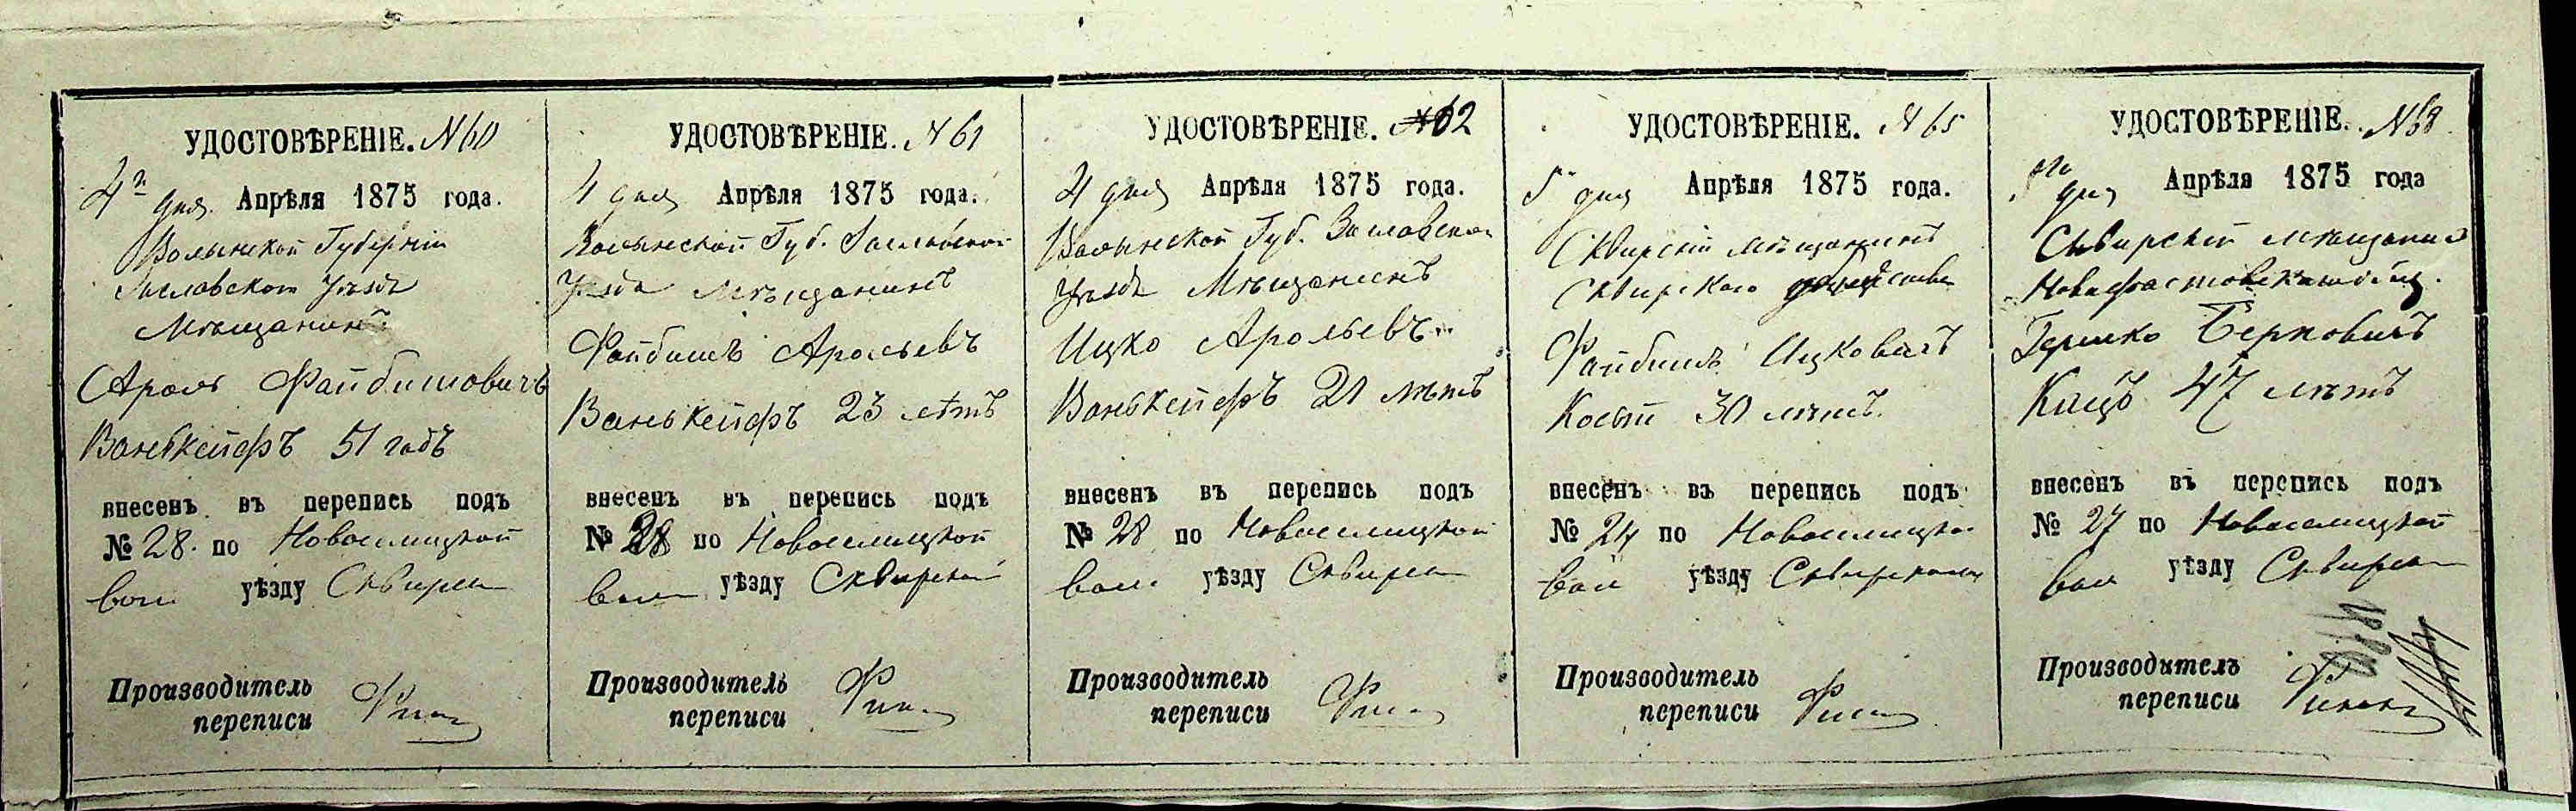 УДОСТОВѢРЕНІЕ. N 60
4 дня Апрѣля 1875 года.
Волынской Губерніи
Заславского Уѣзда
Мѣщанинъ
Аролъ Файбишовичъ
Ванькейфъ 51 годъ
внесенъ въ перепись подъ
№ 28. по Новоселицкой
вол. уѣзду Сквирск
Производитель
переписи
УДОСТОВѢРЕНІЕ. N 61
4 дня Апрѣля 1875 года.
Волынской Губ. Заславской
Уѣзда Мѣщанинъ
Файбишъ Арольевъ
Ванькейфъ 23 лѣтъ
внесенъ въ перепись подъ
№ 28 по Новоселицкой
вол уѣзду Сквирской
Производитель
переписи
УДОСТОВѢРЕНІЕ. № 62
4 дня Апрѣля 1875 года.
Волынской Губ. Заславской
Уѣзда Мѣщанинъ
Ицко Арольевъ
Ванькейфъ 21 лѣтъ
внесенъ въ перепись подъ
№ 28 по Новоселицкой
вол. уѣзду Сквирск
Производитель
переписи
УДОСТОВѢРЕНІЕ. N 65
5 дня Апрѣля 1875 года.
Сквирскій мѣщанинъ
Сквирскаго
Файбишъ Ицковичъ
Косый 30 лѣтъ.
внесенъ въ перепись подъ
№ 24 по Новоселицкой
вол уѣзду Сквирскому
Производитель
переписи
УДОСТОВѢРЕНІЕ. N 68
дня Апрѣля 1875 года
Сквирскій мѣщанинъ
Новофастовскаго общ.
Гершко Берковичъ
Кацъ 47 лѣтъ
внесенъ въ перепись подъ
№ 27 по Новоселицкой
вол уѣзду Сквирск
Производитель
переписи